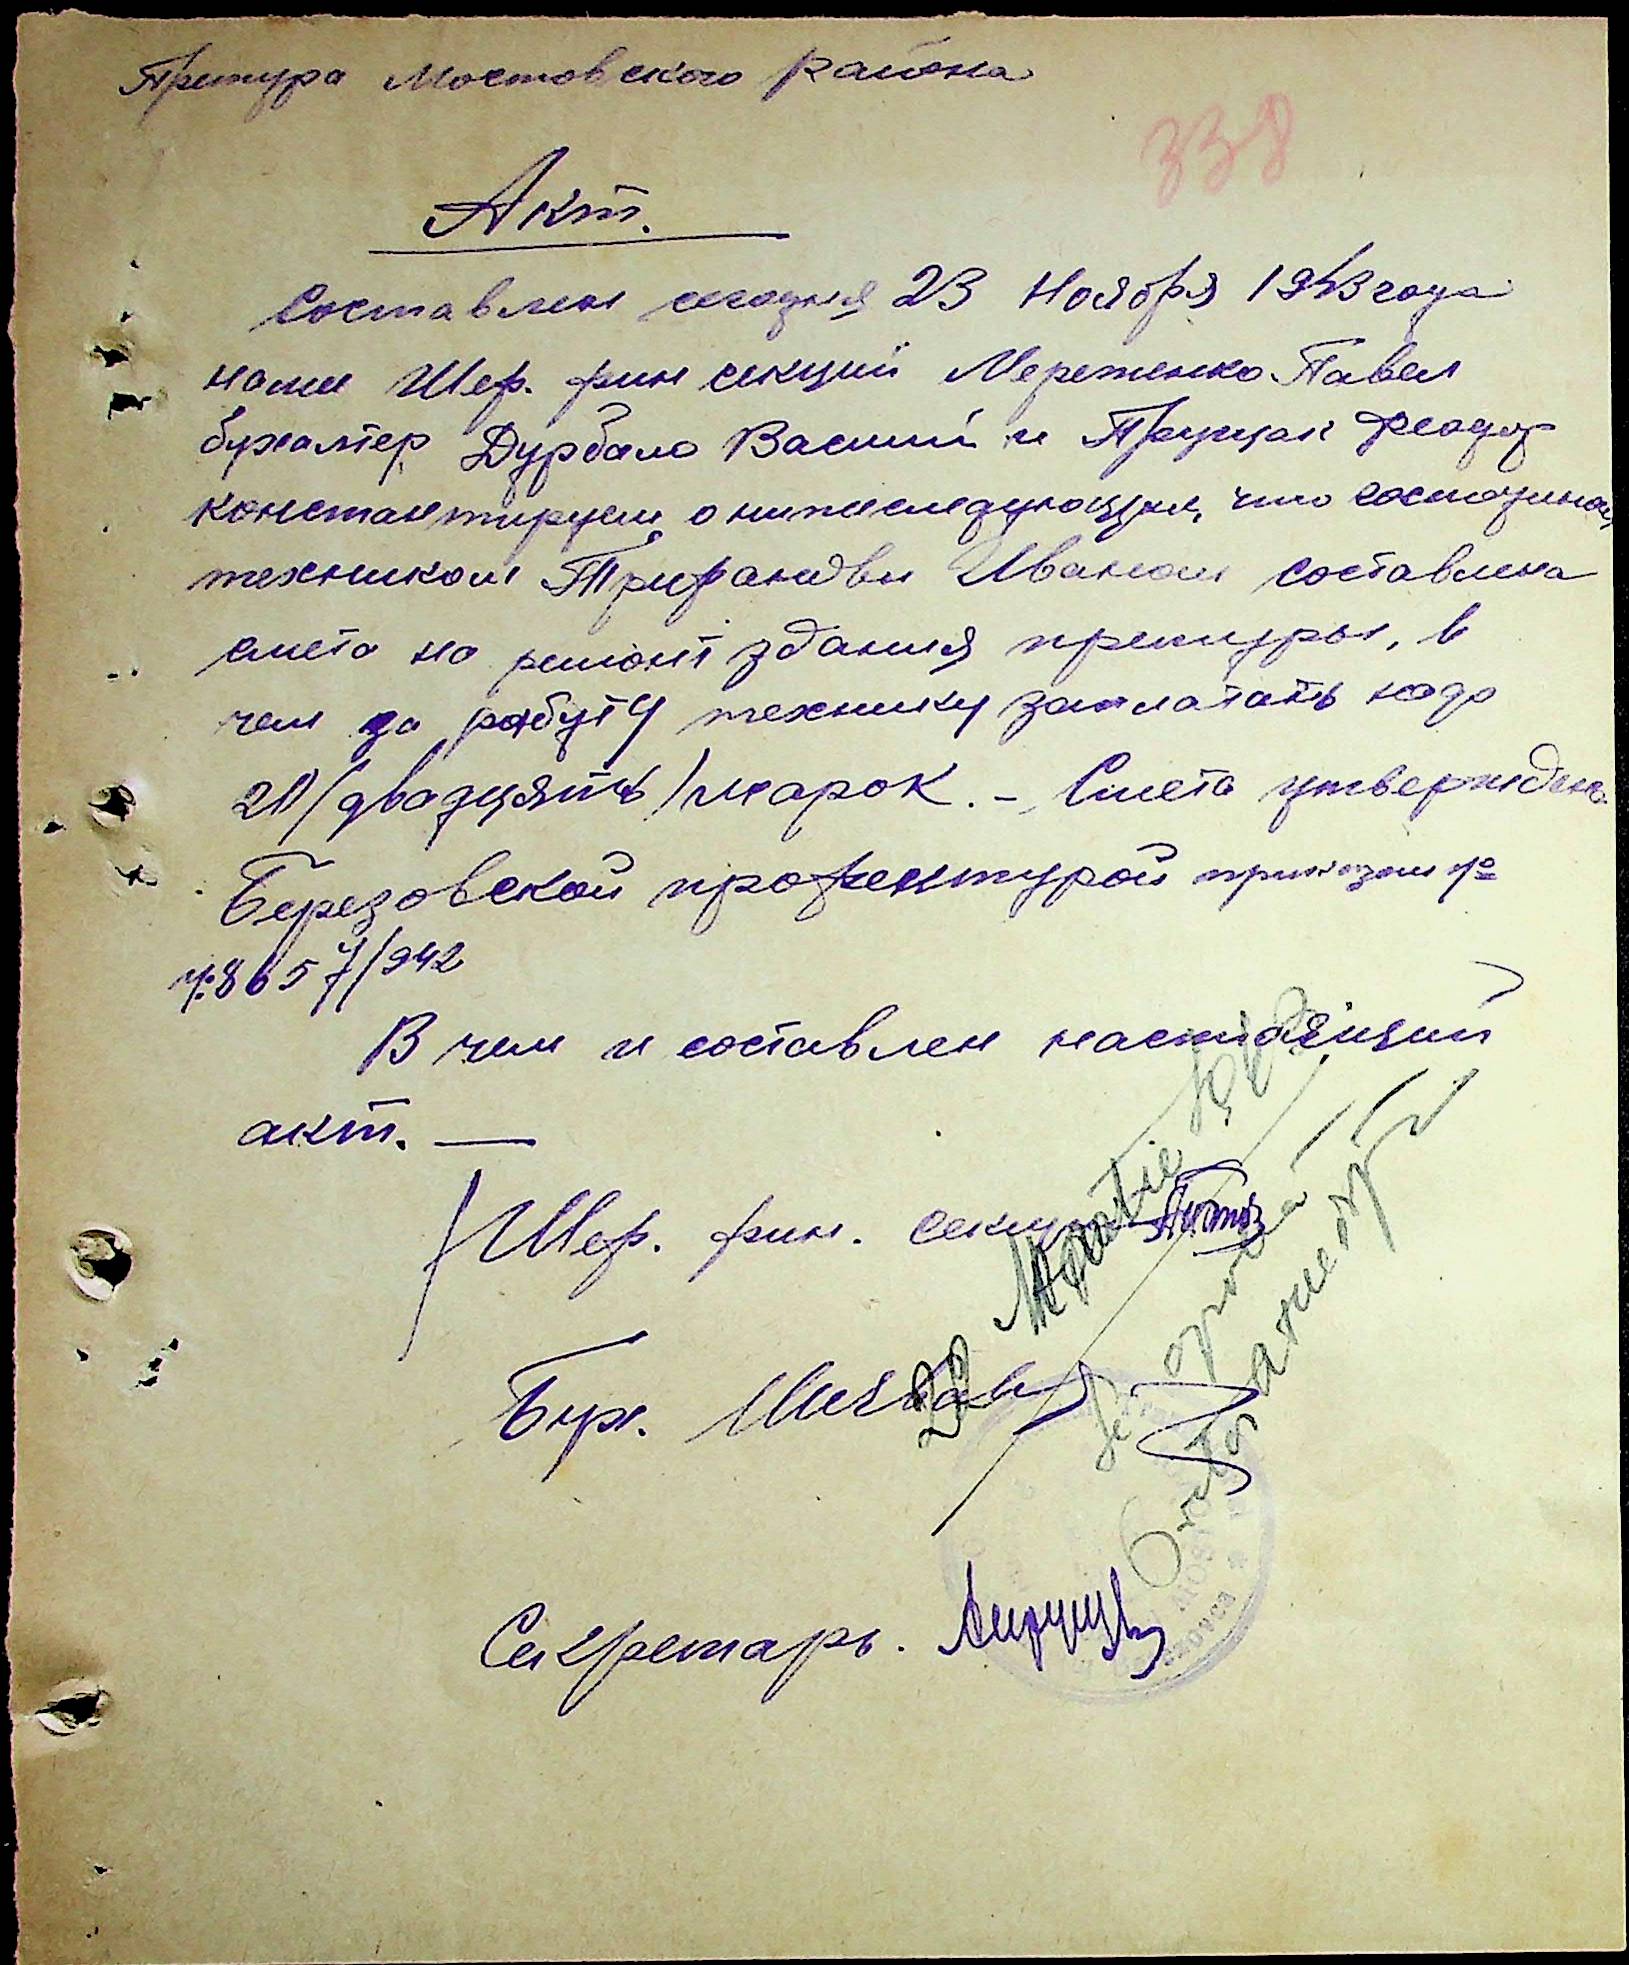 Претура Мостовского района
338
Акт.
Составлен сегодня 23 Ноября 1943 года
нами Шеф. фин секций Мереженко Павел
бухалтер Дурбало Василий и Прущак Феодор
константируем о нижеследующем, что господином
техником Трифановым Иваном составлена
смета на ремонт здания претуры, в
чем за работу технику заплатать надо
20/двадцять/марок. – Смета утверждена
Березовской профектурой приказом №
№ 8657/942
В чем и составлен настоящий
акт. —
Шеф. фин. секции
Бух.
Секретарь.